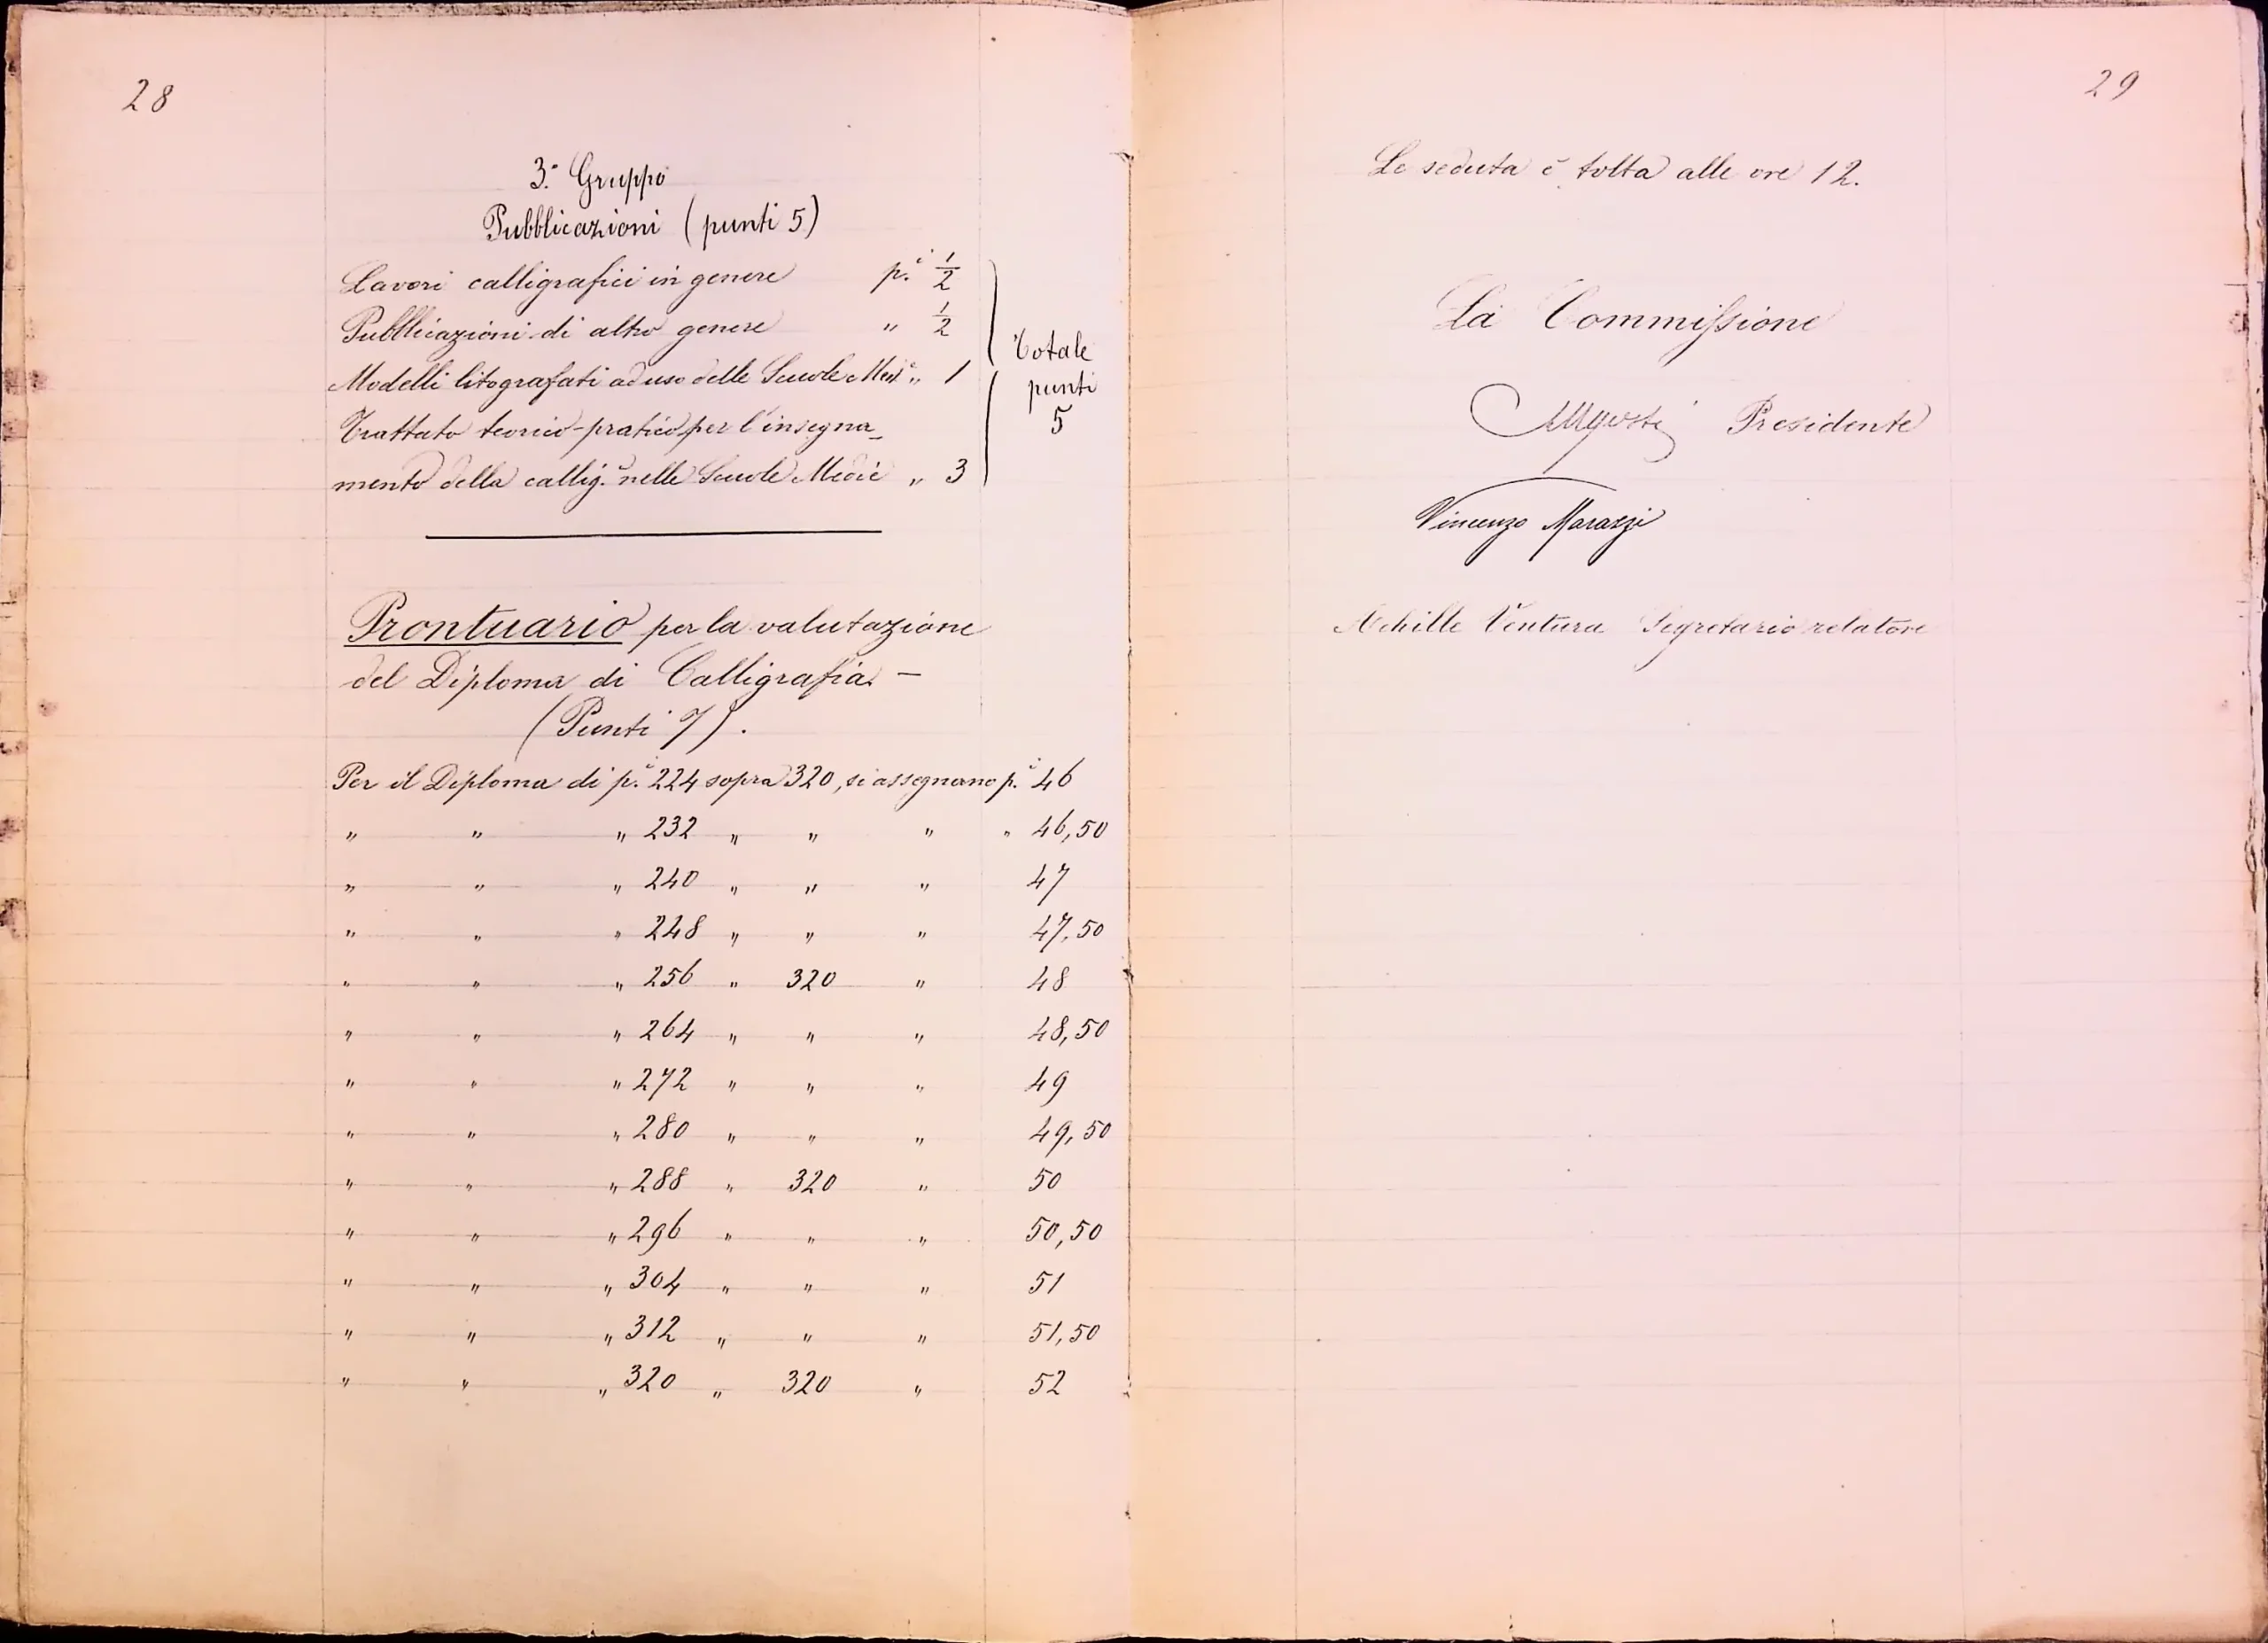 28
3.° Gruppo
Pubblicazioni (punti 5)
Lavori calligrafici in genere p.i 1/2
Pubblicazioni di altro genere " 1/2
Modelli litografati ad uso delle Scuole Med.e " 1
Trattato teorico-pratico per l'insegna-
mento della callig.a nelle Scuole Medie " 3
Totale
punti
5
Prontuario per la valutazione
del Diploma di Calligrafia. —
(Punti 7).
Per il Diploma di p.i 224 sopra 320, si assegnano p.i 46
" " " 232 " " " " 46,50
" " " 240 " " " 47
" " " 248 " " " 47,50
" " " 256 " 320 " 48
" " " 264 " " " 48,50
" " " 272 " " " 49
" " " 280 " " " 49,50
" " " 288 " 320 " 50
" " " 296 " " " 50,50
" " " 304 " " " 51
" " " 312 " " " 51,50
" " " 320 " 320 " 52
29
La seduta è tolta alle ore 12.
La Commissione
Presidente
Vincenzo Marazzi
Achille Ventura Segretario relatore